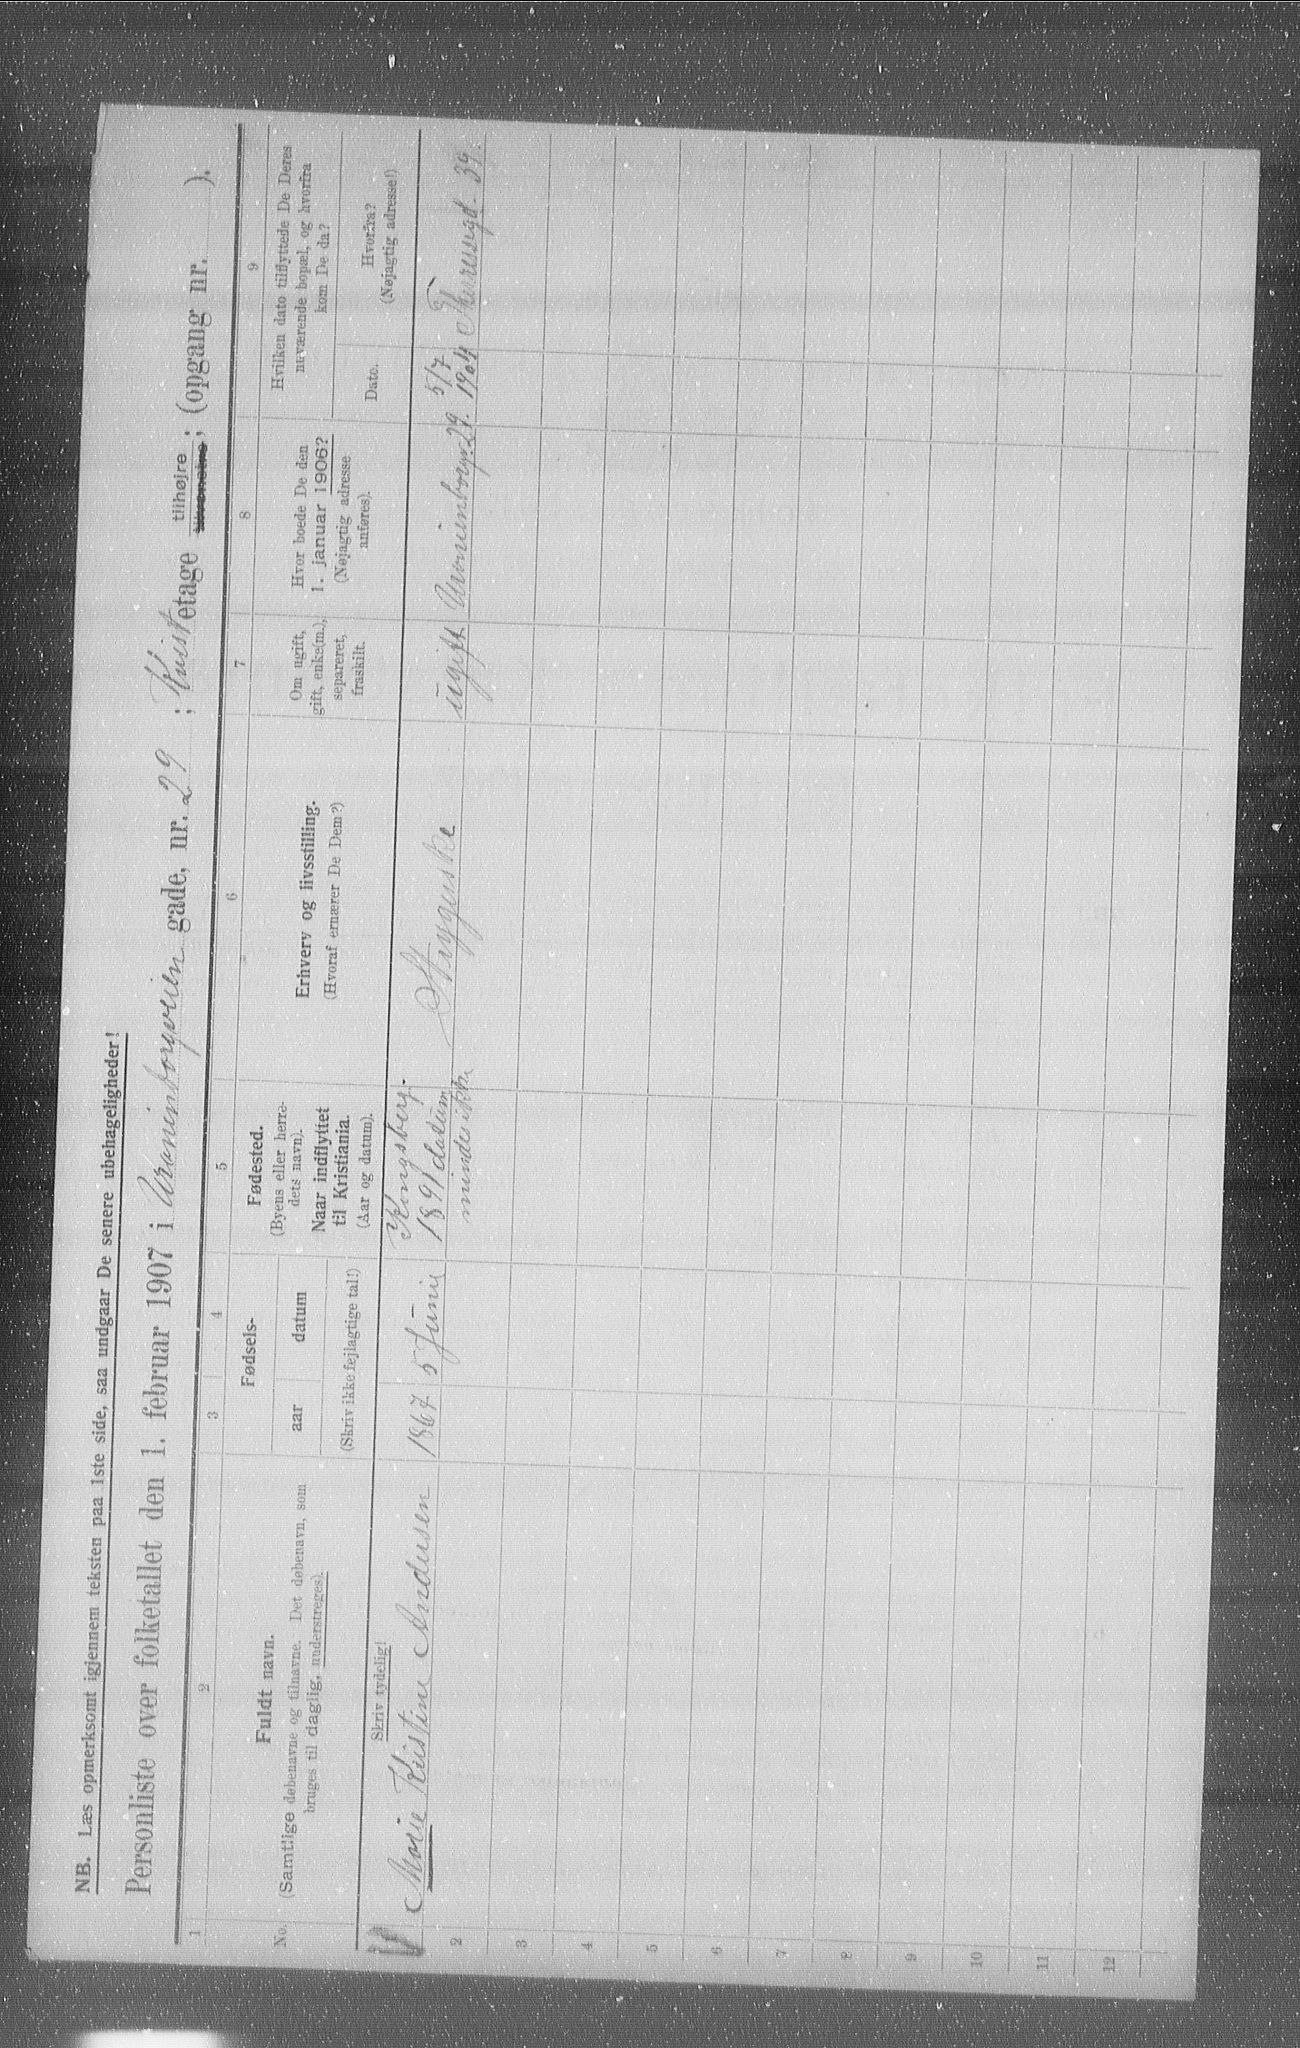 NB. Læs opmerksomt igjennem teksten paa 1ste side, saa undgaar De senere ubehageligheder!
Personliste over folketallet den 1. februar 1907 i Arbeinborgveien gade, nr. 29; Kvistetage tilhøjre tilvenstre; (opgang nr. ).
1 2 3 4 5 6 7 8 9
No.
Fuldt navn.
(Samtlige døbenavne og tilnavne. Det døbenavn, som
bruges til daglig, understreges).
Skriv tydelig!
Fødsels-
aar datum
(Skriv ikke fejlagtige tal!)
Fødested.
(Byens eller herre-
dets navn).
Naar indflyttet
til Kristiania.
(Aar og datum).
Erhverv og livsstilling.
(Hvoraf ernærer De Dem?)
Om ugift,
gift, enke(m.),
separeret,
fraskilt.
Hvor boede De den
1. januar 1906?
(Nøjagtig adresse
anføres).
Hvilken dato tilflyttede De Deres
nuværende bopæl, og hvorfra
kom De da?
Dato.
Hvorfra?
(Nøjagtig adresse!)
1 Marie Kristine Andersen 1867 5 Juni
Kongsberg.
1891 datum
mindes ikke
Strygerske
ugift
29.
5/7
1904
39.
2
3
4
5
6
7
8
9
10
11
12